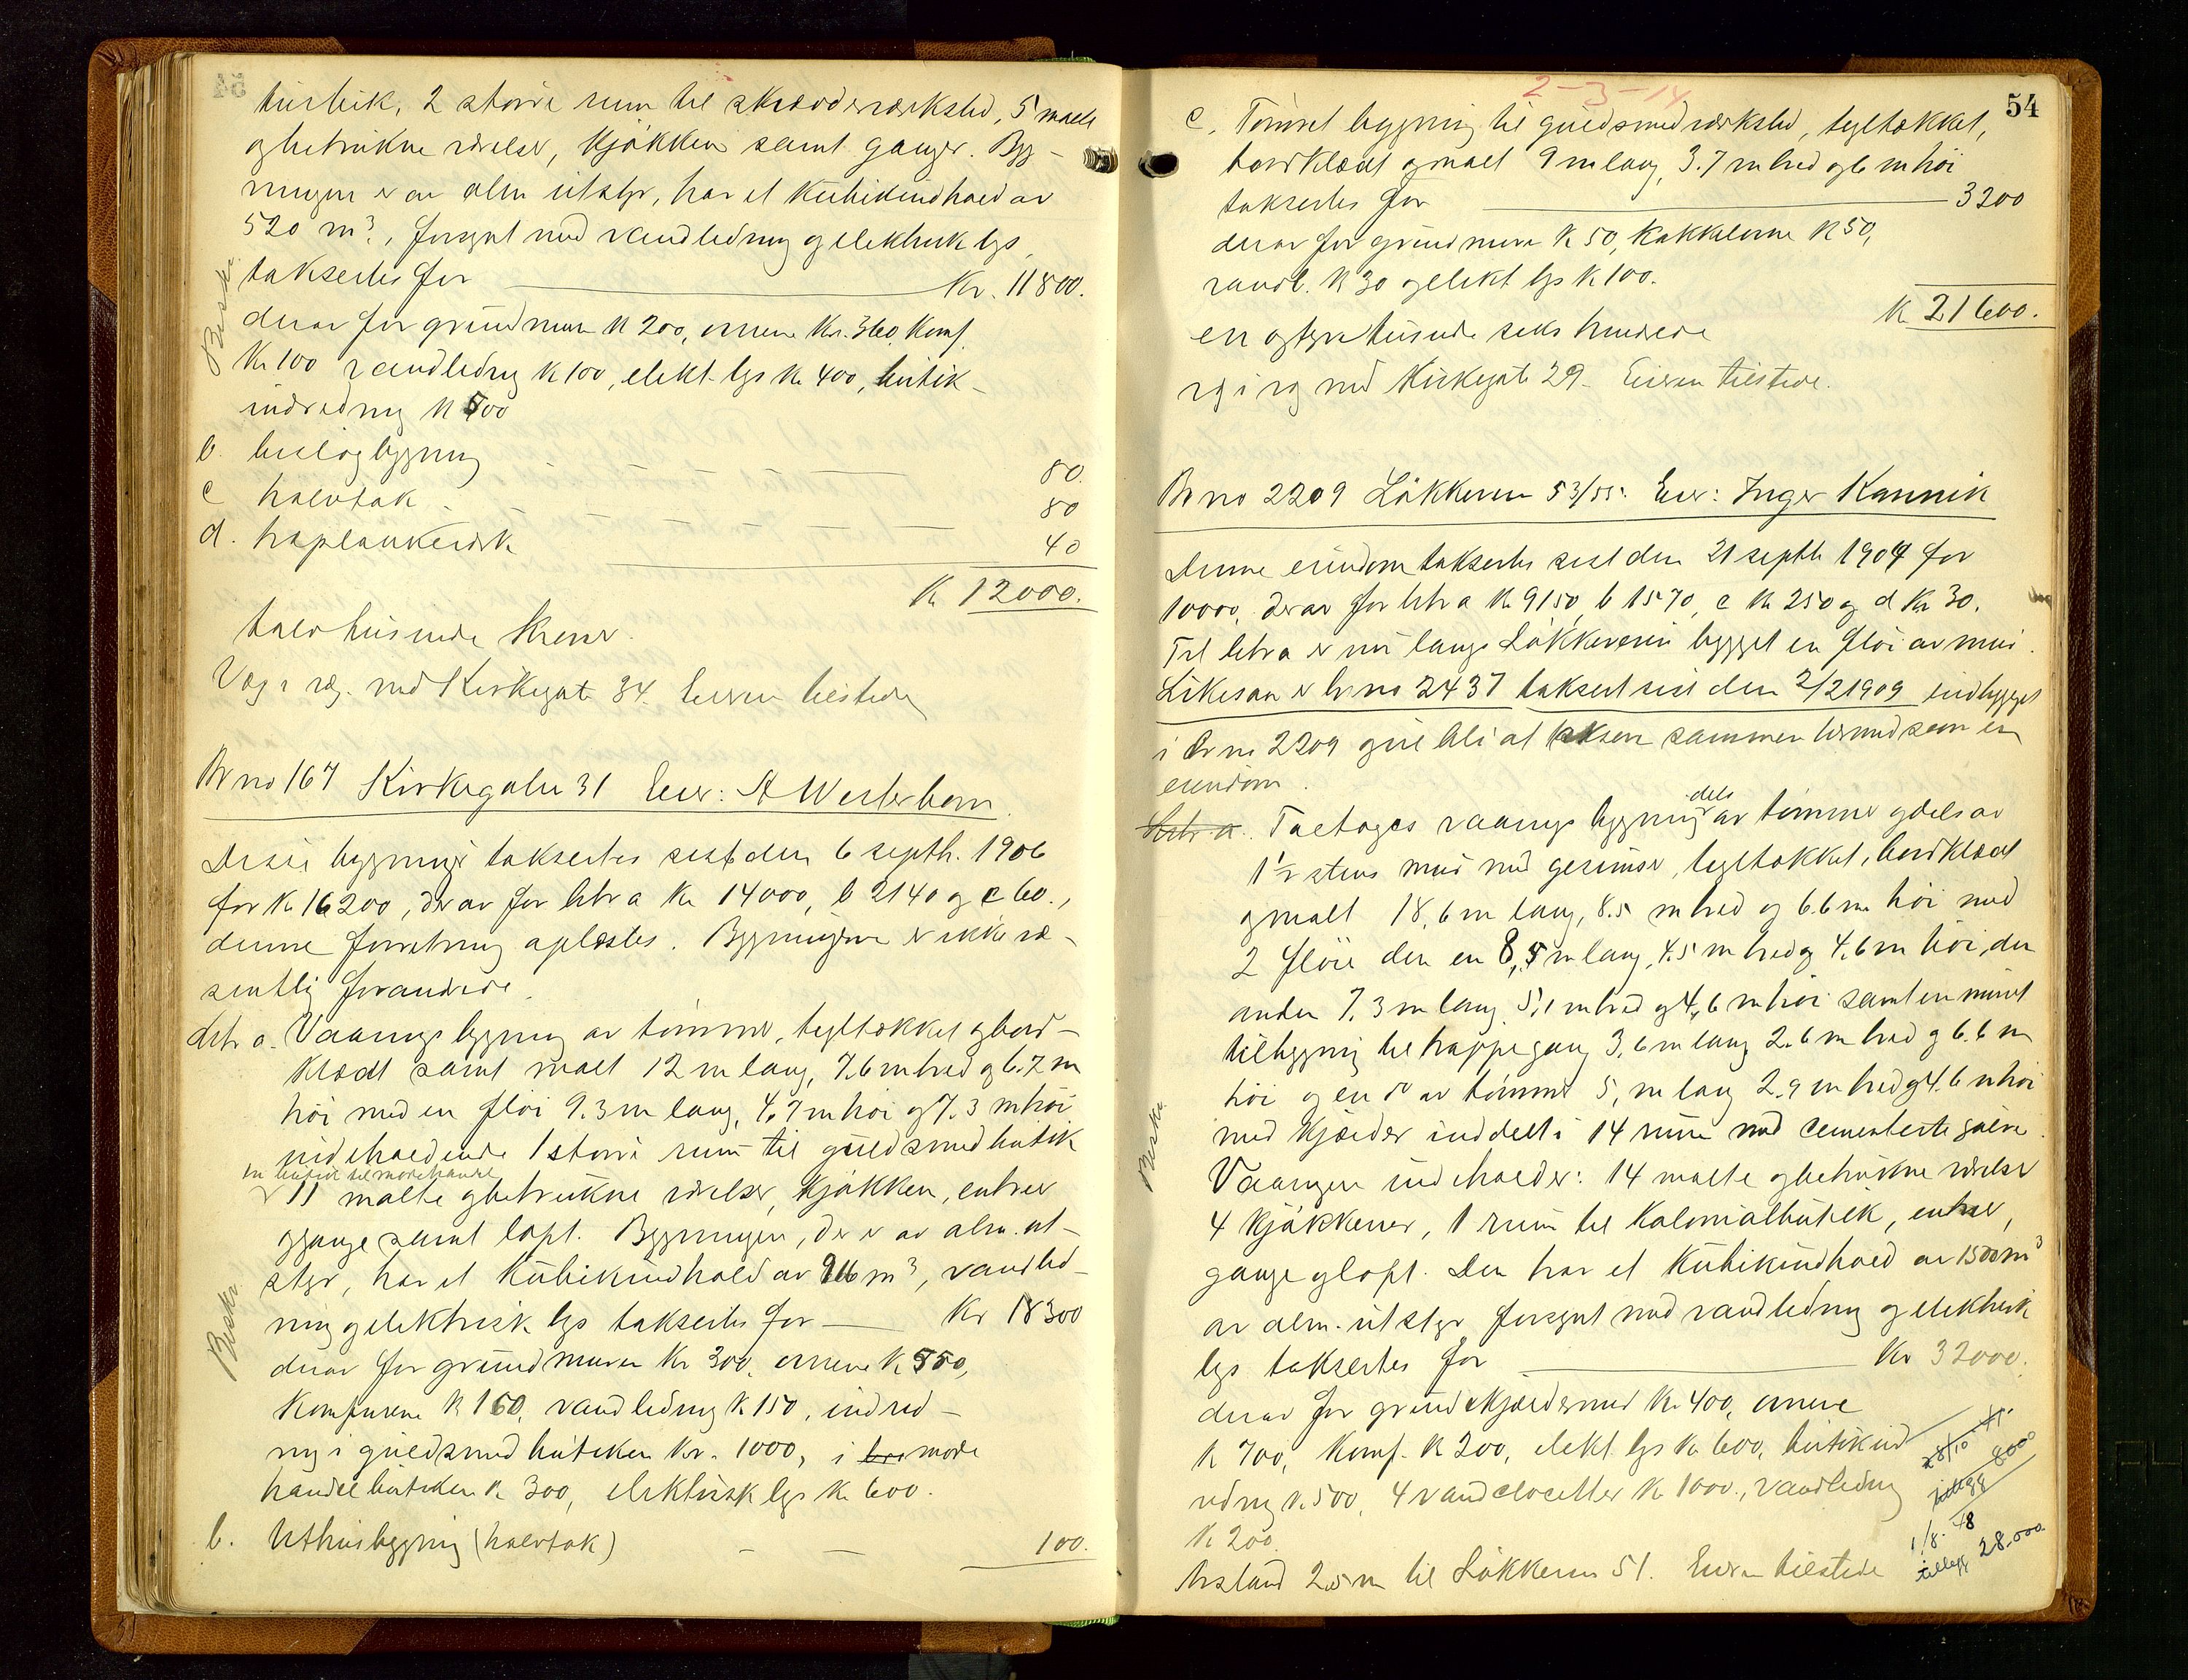 butik, 2 större rum til skrædderværksted, 5 malte
og betrukne værelser, kjökken samt ganger. Byg-
ningen er av alm utstyr, har et kubikindhold av
520 m³, forsynt med vandledning og elektrisk lys,
takseres for Kr. 11800.
derav for grundmur K 200, ovnene Kr. 360, Komf.
Kr 100 vandledning K 100, elekt. lys Kr 400, butik-
indredning K 500
Beskr.
b. beslagbygning 80.
c halvtak 80
d. haplankeværk 40
K 12000.
tolvtusinde kroner.
Væg i væg. med Kirkegate 34. Eieren tilstede
Br no 167 Kirkegaten 31 Eier: A Westerborn
Disse bygninger taksertes sist den 6 septb. 1906
for K 16200, derav for litr a Kr 14000, b 2140 og c 60.,
denne forretning oplæstes. Bygningerne er ikke væ-
sentlig forandrede.
Litr a. Vaaningsbygning av tömmer, tegltækket og bord-
klædt samt malt 12 m lang, 7,6 m bred og 6.7 m
höi med en flöi 9.3 m lang, 4,7 m höi og 7.3 m höi
indeholdende 1 större rum til guldsmedbutik
en butik til modehandel
11 malte og betrukne værelser, kjökken, entree
og gange samt loft. Bygningen, der er av alm. ut-
styr, har et kubikindhold av 916 m³, vandled-
ning og elektrisk lys takseres for Kr 18300
derav for grundmuren Kr 300, ovnene K 550,
Komfurene K 160, vandledning K 150, indred-
ning i guldsmedbutiken Kr. 1000, i mode
handelbutiken K 300, elektrisk lys Kr 600.
Beskr.
b. Uthusbygning (halvtak) 100.
54
2-3-14
c. Tömret bygning til guldsmedværksted, tegltækket,
bordklædt og malt 9 m lang, 3.7 m bred og 6 m höi
takseres for 3200
derav for grundmur K 50, kakkelovne K 50,
vandl. K 30 og elekt lys K 100.
K 21600.
en og tyvetusinde seks hundrede
væg i væg med Kirkegate 29. Eieren tilstede.
Br no 2209 Lökkeveien 53/55. Eier: Inger Kannik
Denne eiendom taksertes sist den 21 septb 1904 for
10000, derav for litr a Kr 9150, b 1570, c Kr 250 og d Kr 30.
Til litr a er nu langs Lökkeveien bygget en flöi av mur.
Likesaa er br no 2437 taksert sist den 2/2 1909 indbygget
i br no 2209 og vil bli at taksere sammen hermed som en
eiendom.
Litr a. Toetages vaaningsbygning dels av tömmer og dels av
1½ stens mur med gesimser, tegltækket, bordklædt
og malt 18,6 m lang, 8.5 m bred og 6.6 m höi med
2 flöie den en 8,5 m lang, 4.5 m bred og 4,6 m höi, den
anden 7.3 m lang 5,1 m bred og 4,6 m höi samt en muret
tilbygning til trappegang 3,6 m lang 2.6 m bred og 6.6 m
höi og en do av tömmer 5, m lang 2.9 m bred og 4.6 m höi
med kjælder inddelt i 14 rum med cementerte gulve.
Beskr.
Vaaningen indeholder: 14 malte og betrukne værelser
4 kjökkener, 1 rum til Kolonialbutik, entree,
gange og loft. Den har et kubikindhold av 1500 m³
av alm. utstyr forsynt med vandledning og elektrisk
lys takseres for Kr 32000.
derav for grund & kjældermur Kr 400, ovnene
K 700, Komf. K 200, elekt. lys Kr 600, butikind-
redning K 500, 4 vandclosetter Kr 1000., vandledning
K 200.
Avstand 2.5 m til Lökkeveien 51. Eieren tilstede
tillegg 8000
1/8. 48
tillegg 28.000